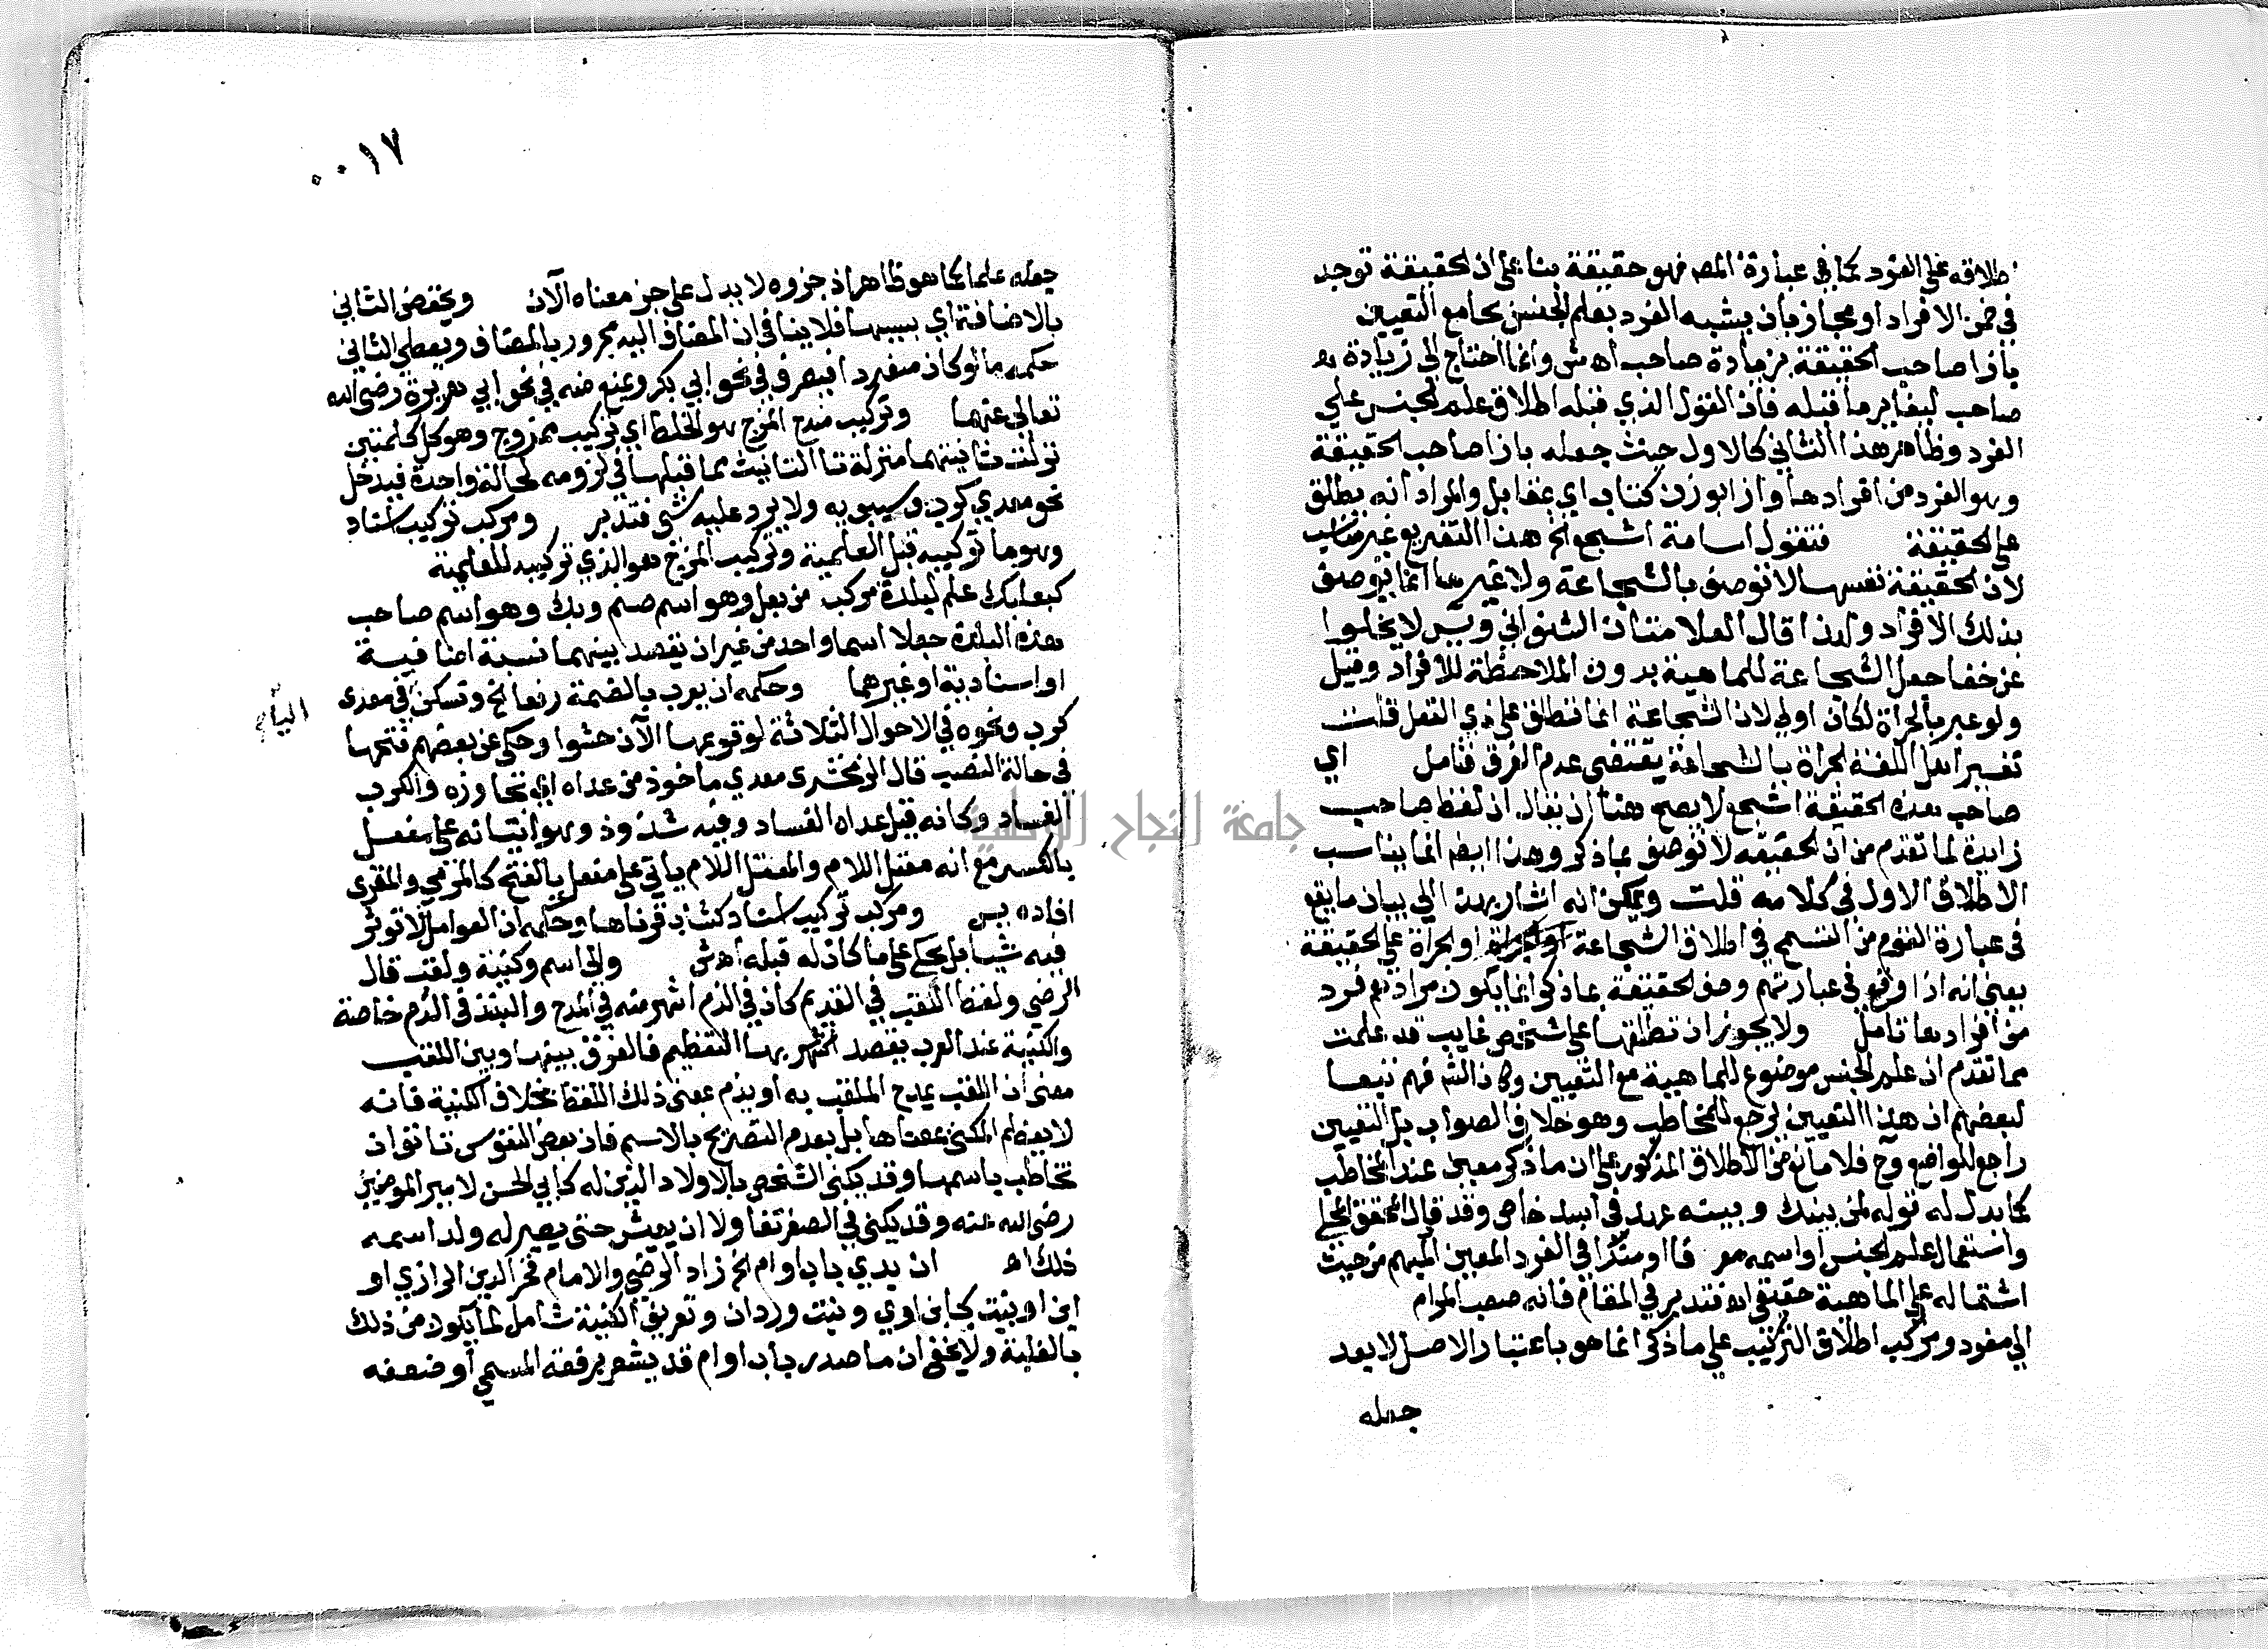 اطلاقه على الفرد كما في عبارة المص فهو حقيقة بنا على ان الحقيقة توجد
في ضمن الافراد او مجاز بان يشبه الفرد بعلم الجنس بجامع التعيين
بازا صاحب الحقيقة بزيادة صاحب اهش وانما احتاج الى زيادة
صاحب ليغاير ما قبله فان القول الذي قبله اطلاق علم الجنس على
الفرد وظاهر هذا الثاني كالاول حيث جعله بازا صاحب الحقيقة
وهو الفرد من افرادها وازا بوزن كتاب اي مقابل والمراد انه يطلق
على الحقيقة فتقول اسامة اشجع الخ هذا التفريع غير مناسب
لان الحقيقة نفسها لا توصف بالشجاعة ولا غيرها انما يوصف
بذلك الافراد ولهذا قال العلامتان الشنواني ويس لا يخلوا
عن خفا جعل الشجاعة للماهية بدون الملاحظة للافراد وقيل
ولو عبر بالجراة لكان اولى لان الشجاعة انما تطلق على ذي العقل قلت
تفسير اهل اللغة الجراة بالشجاعة يقتضى عدم الفرق فتامل اي
صاحب هذه الحقيقة اشجع لا يصح هنا ان يقال ان لفظ صاحب
زايدة لما تقدم من ان الحقيقة لا توصف بما ذكر وهذا ايضا انما يناسب
الاطلاق الاول في كلامه قلت ويمكن انه اشار بهذا الى بيان ما يقع
في عبارة القوم من التسمح في اطلاق الشجاعة او الجراة على الحقيقة
يعني انه اذا وقع في عبارتهم وصف الحقيقة بما ذكر انما يكون مرادهم فرد
من افرادها تامل ولا يجوز ان تطلقها على شخص غايب قد علمت
مما تقدم ان علم الجنس موضوع للماهية مع التعيين وكان الش فهم تبعا
لبعضهم ان هذا التعيين يرجع للمخاطب وهو خلاف الصواب بل التعيين
راجع للواضع وح فلا مانع من الاطلاق المذكور على ان ما ذكر معين عند المخاطب
كما يدل له قوله لمن بينك وبينه عهد في اسد خاص وقد قال المحقق المحلي
واستعمال علم الجنس او اسمه معرفا او منكرا في الفرد المعين او المبهم من حيث
اشتماله على الماهية حقيقي اه فتدبر في المقام فانه صعب المرام
الى مفرد ومركب اطلاق التركيب على ما ذكر انما هو باعتبار الاصل لا بعد
جعله
٠٠١٧
جعله علما كما هو ظاهر اذ جزوه لا يدل على جز معناه الآن ويخفض الثاني
بالاضافة اي بسببها فلا ينافى ان المضاف اليه مجرور بالمضاف ويعطى الثاني
حكمه ما لو كان منفردا فيصرف في نحو ابي بكر ويمنع منه في نحو ابي هريرة رضى الله
تعالى عنهما وتركيب مزج المزج هو الخلط اي تركيب ممزوج وهو كل كلمتين
نزلت ثانيتهما منزلة تا التانيث مما قبلها في لزومه لحالة واحدة فيدخل
نحو معدي كرب وسيبويه ولا يرد عليه شى فتدبر ومركب تركيب اسناد
وهو ما تركيبه قبل العلمية وتركيب المزج هو الذي تركيبه للعلمية
كبعلبك علم لبلدة مركب من بعل وهو اسم صنم وبك وهو اسم صاحب
هذه البلدة جعلا اسما واحد من غير ان يقصد بينهما نسبة اضافية
او اسنادية او غيرهما وحكمه ان يعرب بالضمة رفعا الخ وتسكن في معدى
الياء
كرب ونحوه في الاحوال الثلاثة لوقوعها الآن حشوا وحكى عن بعضهم فتحها
في حالة النصب قال الزمخشرى معدي ماخوذ من عداه اي تجاوزه والكرب
الفساد وكانه قيل عداه الفساد وفيه شذوذ وهو اتيانه على مفعل
بالكسر مع انه معتل اللام والمعتل اللام ياتى على مفعل بالفتح كالمرمى والمقرى
افاده يس ومركب تركيب اسناد كشاب قرناها وحكمه ان العوامل لا توثر
فيه شيا بل يحكى على ما كان له قبله اهش والى اسم وكنية ولقب قال
الرضي ولفظ اللقب في القديم كان في الذم اشهر منه في المدح والنبز في الذم خاصة
والكنية عند العرب يقصد بها التعظيم فالفرق بينها وبين اللقب
معنى ان اللقب يمدح الملقب به او يذم بمعنى ذلك اللفظ بخلاف الكنية فانه
لا يعظم المكنى بمعناها بل بعدم التصريح بالاسم فان بعض النفوس تانف ان
تخاطب باسمها وقد يكنى الشخص بالاولاد الذين له كابي الحسن لامير المومنين
رضى الله عنه وقد يكنى في الصغر تفاولا ان يعيش حتى يصير له ولد اسمه
ذلك اه ان بدي باب او ام الخ زاد الرضى والامام فخر الدين الرازي او
ابن او بنت كابن اوي وبنت وردان وتعريف الكنية شامل لما يكون من ذلك
بالغلبة ولا يخفى ان ما صدر باب او ام قد يشعر برفعة المسمى او ضعفه
جامعة النجاح الوطنية